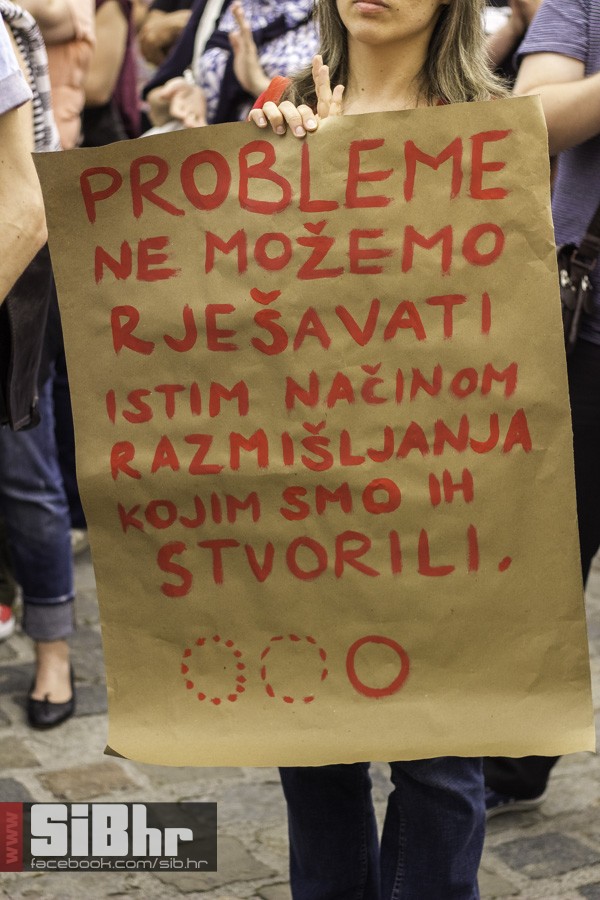 PROBLEME
NE MOŽEMO
RJEŠAVATI
ISTIM NAČINOM
RAZMIŠLJANJA
KOJIM SMO IH
STVORILI.
www
SiBhr
facebook.com/sib.hr